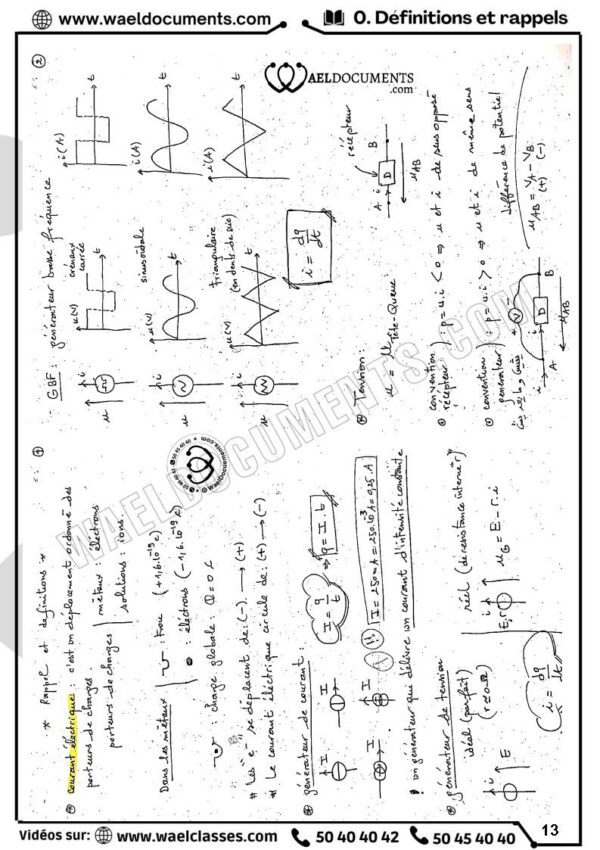 www.waeldocuments.com
0. Définitions et rappels
* Rappel et définitions *
①
courant électrique : c'est un déplacement ordonné des
porteurs de charges.
porteurs de charges | métaux : électrons
solutions : ions.
Dans les métaux | trou (+1,6.10⁻¹⁹ C)
⊖ : électrons (-1,6.10⁻¹⁹ C)
: charge globale: Q = 0 C
* Les e⁻ se déplacent de: (-) → (+)
* Le courant électrique circule de: (+) → (-)
générateur de courant :
I = q/t
⇒ q = I.t
I
I
I
I
I = 250 mA = 250.10⁻³ A = 0,25 A
! un générateur qui délivre un courant d'intensité constante
générateur de tension
idéal (parfait)
(r ≈ 0 Ω)
réel (de resistance interne r)
i
E
i
E,r
u_G = E - r.i
i = dq/dt
②
GBF : générateur basse fréquence
créneaux
carrée
u
i
u(V)
t
i(A)
t
sinusoïdale
u
i
u(V)
t
i(A)
t
triangulaire
(en dents de scie)
u
i
u(V)
t
i(A)
t
i = dq/dt
Tension :
u = u Tête-Queue
récepteur
A
i
D
B
u_AB
convention
récepteur ) : p = u.i < 0 ⇒ u et i de sens opposé
convention
générateur ) : p = u.i > 0 ⇒ u et i de même sens
différence de potentiel
i
A
D
B
V
u_AB
u_AB = V_A - V_B
(+) (-)
WAELDOCUMENTS
.com
WAELDOCUMENTS.COM
WaelDocuments.com
50 40 40 42
Vidéos sur:
www.waelclasses.com
50 40 40 42
50 45 40 40
13